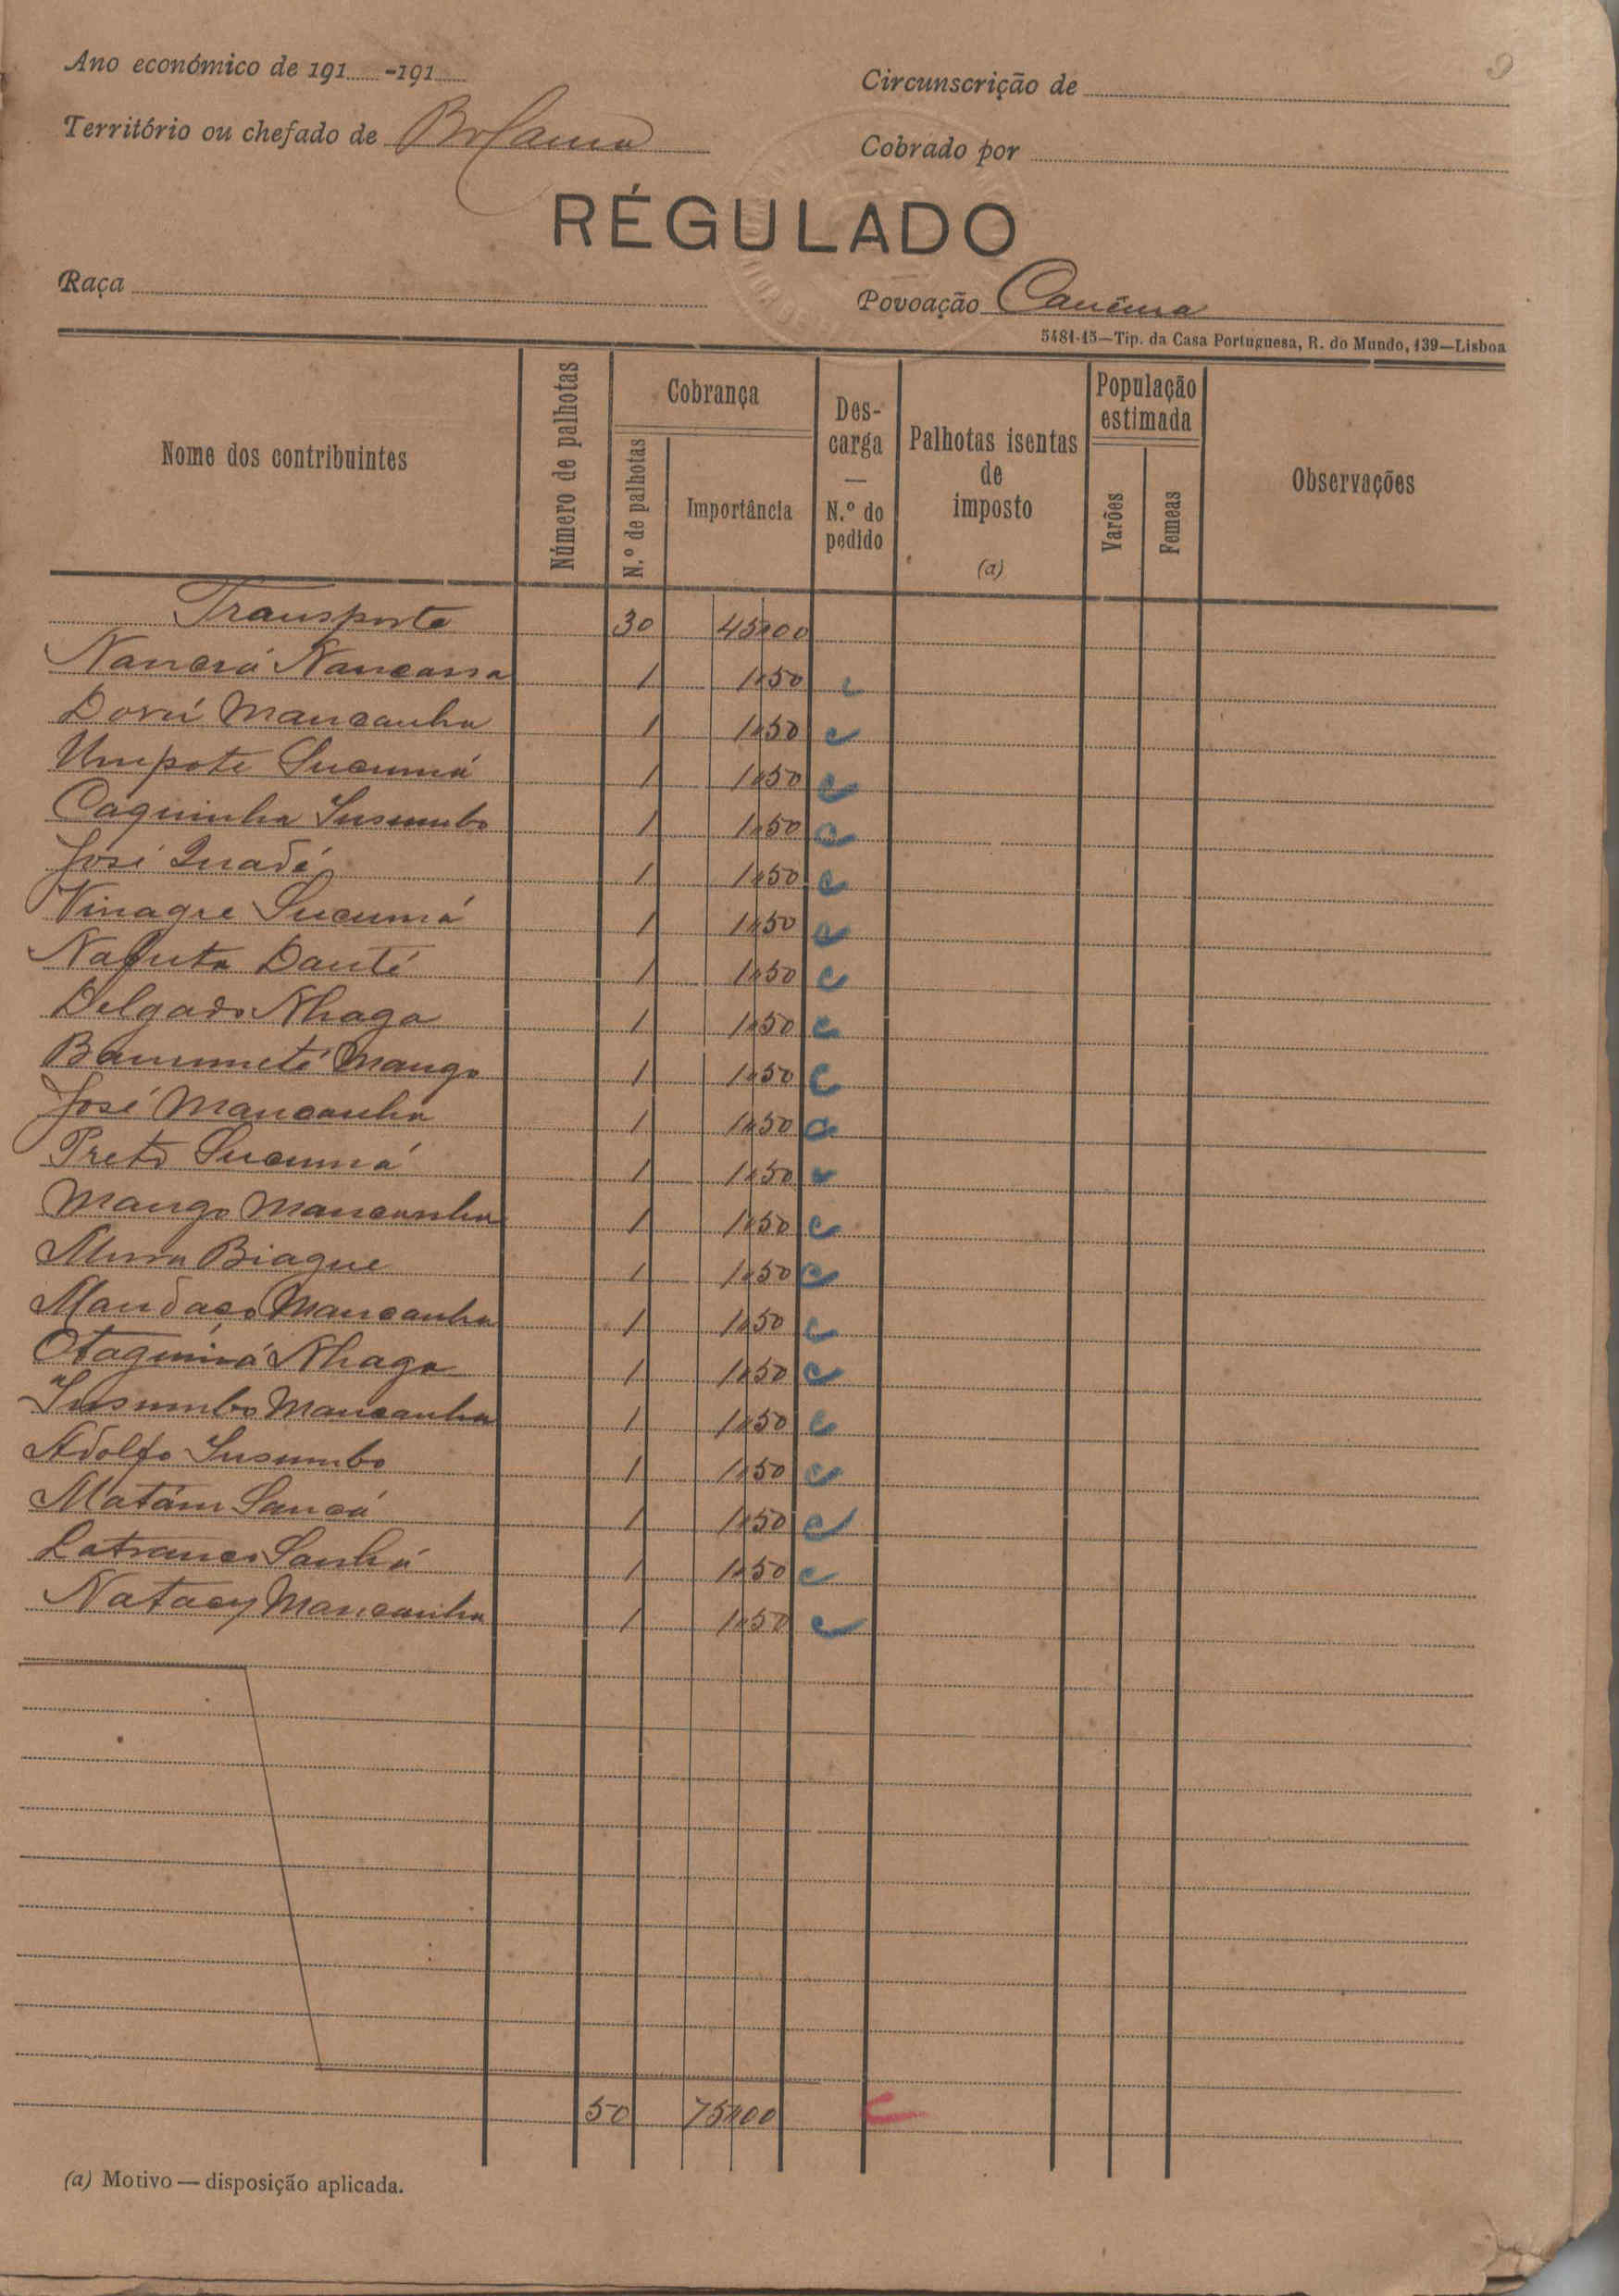 Ano económico de 191 -191
Circunscrição de
Território ou chefado de Bolama
Cobrado por
RÉGULADO
Raça
Povoação
5484-15—Tip. da Casa Portuguesa, R. do Mundo, 139—Lisboa
Nome dos contribuintes
Número de palhotas
Cobrança
N.º de palhotas
Importância
Descarga — N.º do pedido
Palhotas isentas de imposto (a)
População estimada
Varões
Femeas
Observações
Transporte 30 45$00
1 1$50
Mancanha 1 1$50
Umpote Sucumá 1 1$50
Caquinha Susumbo 1 1$50
José 1 1$50
Vinagre Sucumá 1 1$50
Nafuta Danté 1 1$50
Delgado Nhaga 1 1$50
Mango 1 1$50
José Mancanha 1 1$50
Preto Sucumá 1 1$50
Mango Mancanha 1 1$50
Biague 1 1$50
Mancanha 1 1$50
Nhaga 1 1$50
Susumbo Mancanha 1 1$50
Adolfo Susumbo 1 1$50
Matám Sancá 1 1$50
Sanhá 1 1$50
Natacy Mancanha 1 1$50
50 75$00
(a) Motivo — disposição aplicada.